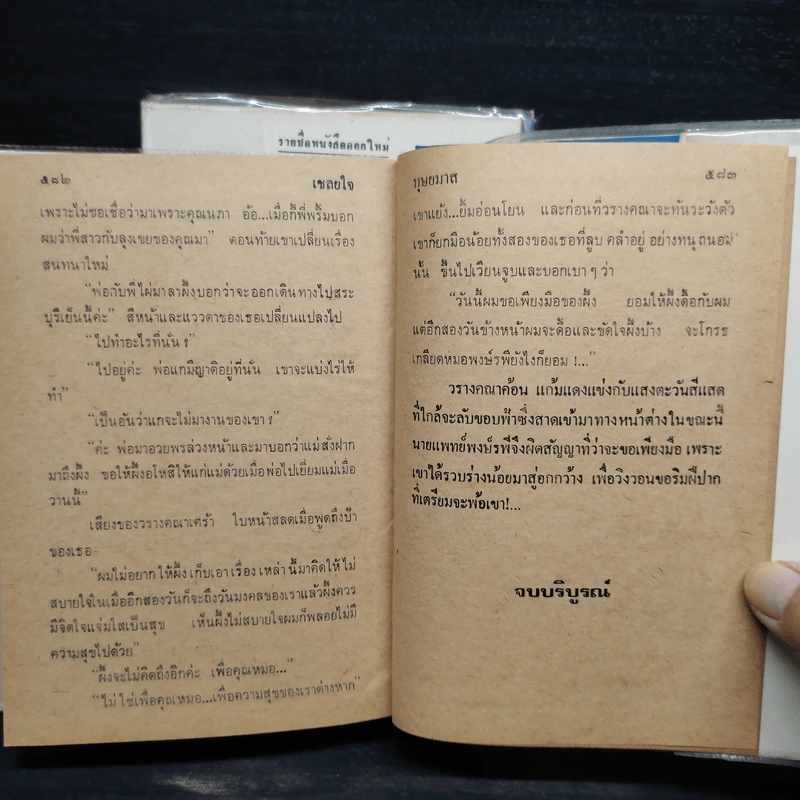 รายชื่อหนังสือออกใหม่
๕๘๒
เชลยใจ
เพราะไม่ขอเชื่อว่ามาเพราะคุณนภา อ้อ...เมื่อกี้พี่พริ้มบอก
ผมว่าพี่สาวกับลุงเขยของคุณมา” ตอนท้ายเขาเปลี่ยนเรื่อง
สนทนาใหม่
“พ่อกับพี่ไผ่มาลาผึ้งบอกว่าจะออกเดินทางไปสระ
บุรีเย็นนี้ค่ะ” สีหน้าและแววตาของเธอเปลี่ยนแปลงไป
“ไปทำอะไรที่นั่น ?”
“ไปอยู่ค่ะ พ่อแกมีญาติอยู่ที่นั่น เขาจะแบ่งไร่ให้
ทำ”
“เป็นอันว่าแกจะไม่มางานของเขา ?”
“ค่ะ พ่อมาอวยพรล่วงหน้าและมาบอกว่าแม่สั่งฝาก
มาถึงผึ้ง ขอให้ผึ้งอโหสิให้แก่แม่ด้วยเมื่อพ่อไปเยี่ยมแม่เมื่อ
วานนี้”
เสียงของวรางคณาเศร้า ใบหน้าสลดเมื่อพูดถึงป้า
ของเธอ
“ผมไม่อยากให้ผึ้งเก็บเอาเรื่องเหล่านี้มาคิดให้ไม่
สบายใจในเมื่ออีกสองวันก็จะถึงวันมงคลของเราแล้วผึ้งควร
มีจิตใจแจ่มใสเป็นสุข เห็นผึ้งไม่สบายใจผมก็พลอยไม่มี
ความสุขไปด้วย”
“ผึ้งจะไม่คิดถึงอีกค่ะ เพื่อคุณหมอ...”
“ไม่ใช่เพื่อคุณหมอ...เพื่อความสุขของเราต่างหาก”
บุษยมาส
๕๘๓
เขาแย้ง...ยิ้มอ่อนโยน และก่อนที่วรางคณาจะทันระวังตัว
เขาก็ยกมือน้อยทั้งสองของเธอที่ลูบ คลำอยู่ อย่างทนุถนอม
นั้น ขึ้นไปเวียนจูบและบอกเบา ๆ ว่า
“วันนี้ผมขอเพียงมือของผึ้ง ยอมให้ผึ้งดื้อกับผม
แต่อีกสองวันข้างหน้าผมจะดื้อและขัดใจผึ้งบ้าง จะโกรธ
เกลียดหมอพงษ์รพียังไงก็ยอม !...”
วรางคณาค้อน แก้มแดงแข่งกับแสงตะวันสีแสด
ที่ใกล้จะลับขอบฟ้าซึ่งสาดเข้ามาทางหน้าต่างในขณะนี้
นายแพทย์พงษ์รพีจึงผิดสัญญาที่ว่าจะขอเพียงมือ เพราะ
เขาได้รวบร่างน้อยมาสู่อกกว้าง เพื่อวิงวอนขอริมฝีปาก
ที่เตรียมจะพ้อเขา!...
จบบริบูรณ์